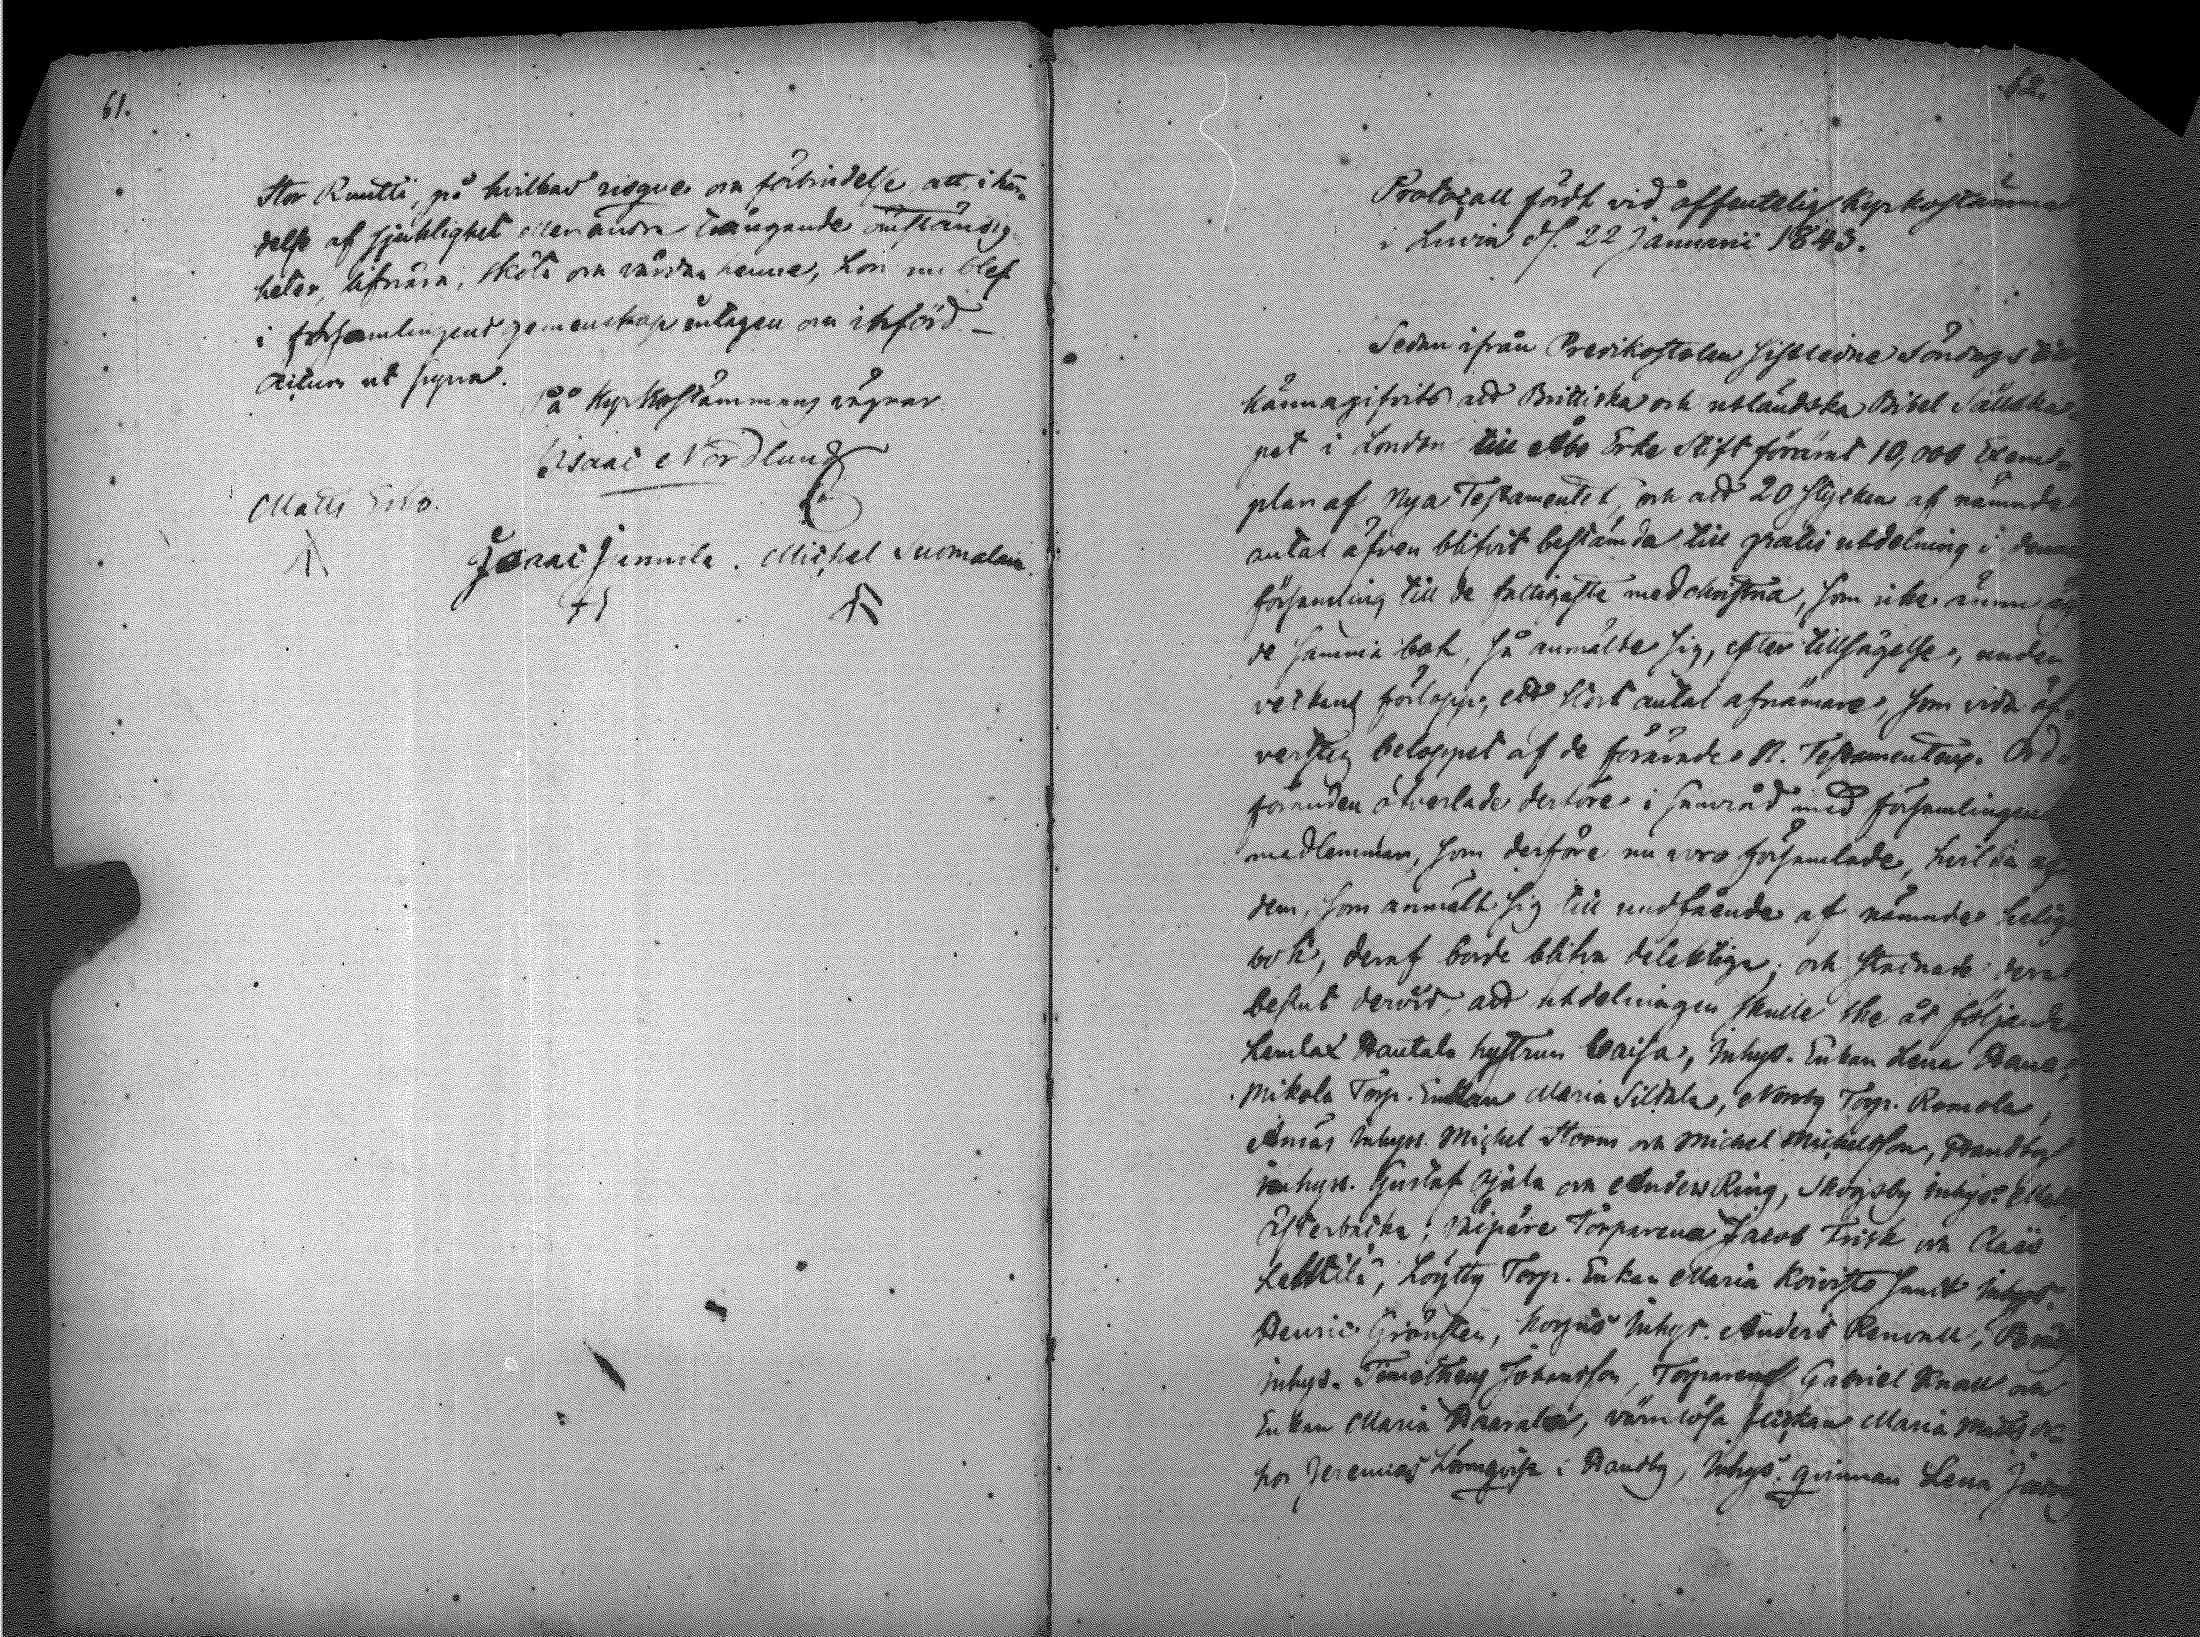 61.
Stor Knutti, på hvilkas risque och förbindelse att, i hän-
delse af sjuklighet eller andra trängande omständig-
heter, lifnära, sköta och vårda henne, hon nu blef
i församlingens gemenskap antagen och införd. —
Actum ut supra.
På Kyrkostämmans vägnar
Isaac Nordlund
Matts Erko.
Isaac Jennila. Michel Suomalain
62.
Protocoll fördt vid offentelig Kyrkostämma
i Luvia d. 22 Januarii 1843.
Sedan ifrån Predikostolen sistledne Söndag
kännagifvits att Brittiska och utländska Bibel Sällska
pet i London till Åbo Erke Stift förärat 10,000 Exem-
plar af Nya Testamentet, och att 20 stycken af nämnda
antal äfven blifvit bestämda till gratis utdelning i denna
församling till de fattigaste medchristna, som icke ännu äg
de samma bok, så anmälde sig, efter tillsägelse, under
veckans förlopp, ett stort antal afnämare, som vida öf-
versteg beloppet af de förärade N. Testamenten. Ord-
föranden öfverlade derföre i samråd med församlingens
medlemmar, som derföre nu voro församlade, hvilka af
dem, som anmält sig till undfående af nämnde helig
bok, deraf borde blifva delaktige; och stadnade deras
beslut dervid, att utdelningen skulle ske åt följande
Lemlax Hautala hustrun Caisa, Inhys. Enkan Lena
Mikola Torp. Enkan Maria Sildala, Norrby Torp. Romola,
Inhys. Michel Storm och Michel Michelsson,
Inhys. Gustaf och Anders Ring, Skogsby Inhys.
Österbacka, Torparena Jacob Frisk och Claës
Löytty Torp. Enkan Maria Koivisto samt Inhys.
Henric Grönsten, Korpus Inhys. Anders Renvall,
Inhys. Timotheus Johansson, Torparens Gabriel Knall och
Enkan Maria värnlösa flickan Maria
hos Jeremias Lönnqvist i Inhys. qvinnan Lena